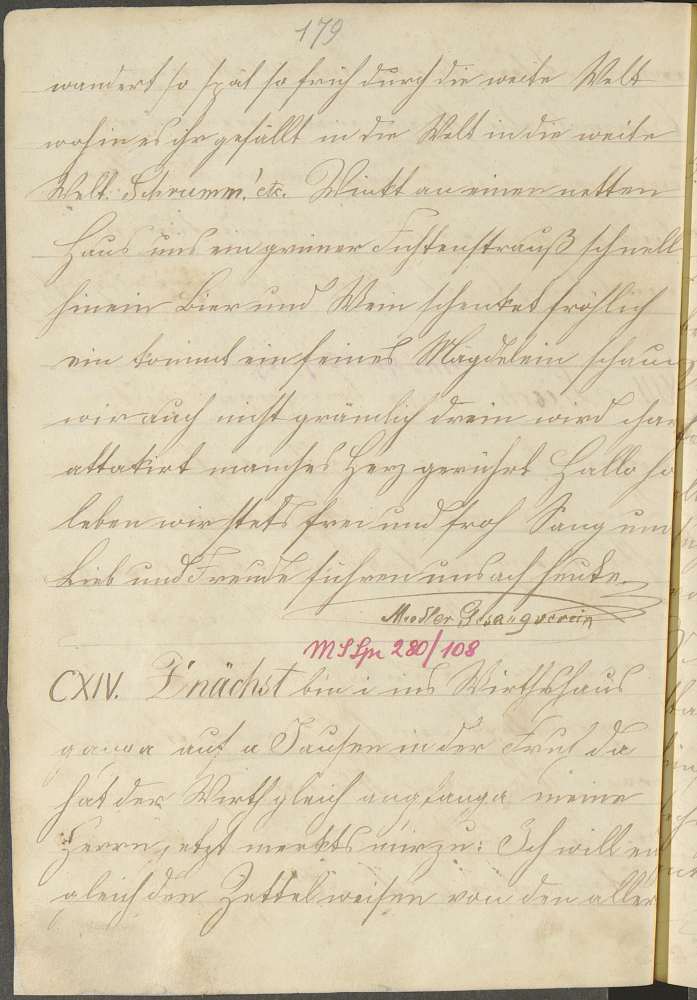 179
wandert so spät so früh durch die weite Welt
wohin es ihr gefällt in die Welt in die weite
Welt. Schrumm! etc. Winkt an einem netten
Haus uns ein grüner Fichtenstrauß schnell
hinein Bier und Wein schenket fröhlich
ein kommt ein feines Mägdelein schaun
wir auch nicht grämlich drein wird
attakirt manches Herz gerührt Hallo so
leben wir stets frei und froh Sang und
Lieb und Freude führen uns ach heute.
Gesangverein
MS Spr 280/108
CXIV. D'nächst bin i ins Wirthshaus
ganga auf a in der Fruh da
hat der Wirth gleich angfanga meine
Herrn, etzt merkts mir zu: Ich will
gleich den Zettel weisen von den aller